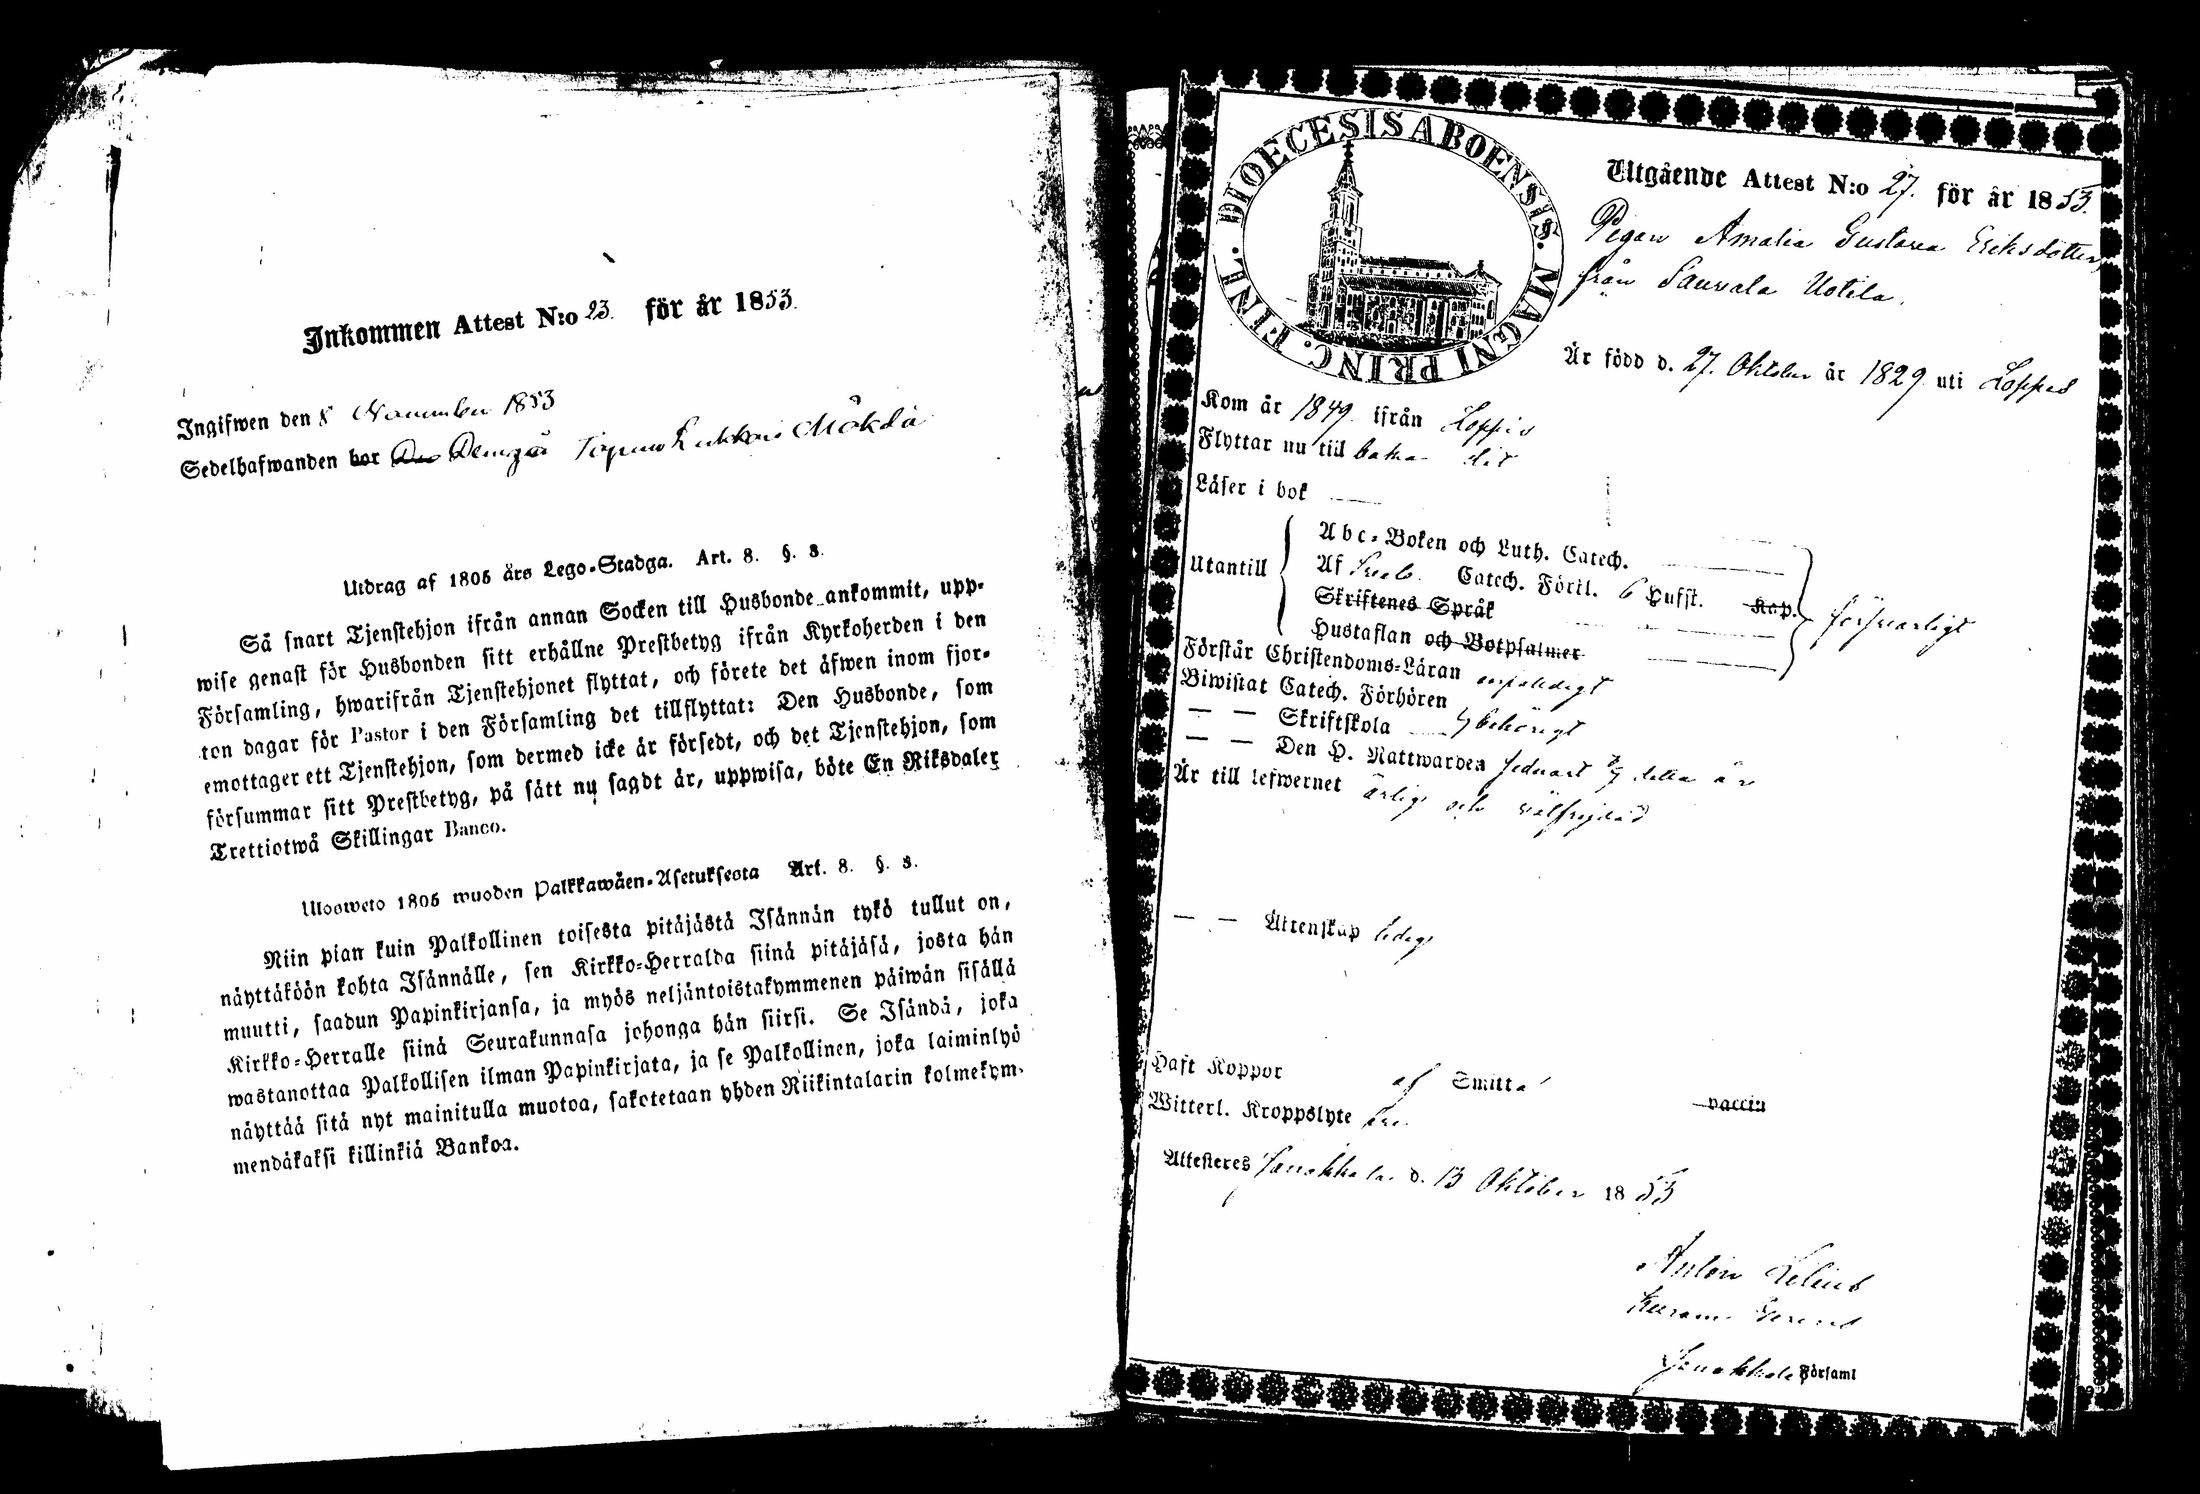 Inkommen Attest N:o 23. för år 1853.
Ingifwen den 8 November 1853
Sedelhafwanden bor
Utdrag af 1805 års Lego-Stadga. Art. 8. §. 3.
Så snart Tjenstehjon ifrån annan Socken till Husbonde ankommit, upp-
wise genast för Husbonden sitt erhållne Prestbetyg ifrån Kyrkoherden i den
Församling, hwarifrån Tjenstehjonet flyttat, och förete det åfwen inom fjor-
ton dagar för Pastor i den Församling det tillflyttat: Den Husbonde, som
emottager ett Tjenstehjon, som dermed icke är försedt, och det Tjenstehjon, som
försummar sitt Prestbetyg, på sätt nu sagdt är, uppwisa, böte En Riksdaler
Trettiotwå Skillingar Banco.
Ulosweto 1805 wuoden Palkkawäen-Asetuksesta Art. 8. §. 3.
Niin pian kuin Palkollinen toisesta pitäjästä Isännän tykö tullut on,
näyttäköön kohta Isännälle, sen Kirkko-Herralda siinä pitäjäsä, josta hän
muutti, saadun Papinkirjansa, ja myös neljäntoistakymmenen päiwän sisällä
Kirkko-Herralle siinä Seurakunnasa johonga hän siirsi. Se Isändä, joka
wastanottaa Palkollisen ilman Papinkirjata, ja se Palkollinen, joka laiminlyö
näyttää sitä nyt mainitulla muotoa, sakotetaan yhden Riikintalarin kolmekym-
mendäkaksi killinkiä Bankoa.
DIOECESIS ABOENSIS. MAGNI PRINC. FINL.
Utgående Attest N:o 27. för år 1853.
Pigan Amalia Gustava Eriksdotter
från Sauvala Uotila.
Är född d. 27. Oktober år 1829 uti Loppis
Kom år 1849 ifrån Loppis
Flyttar nu till baka dit
Läser i bok
Abc-Boken och Luth. Catech.
Utantill Af Sveb. Catech. Förkl. 6 Hufst. Kap. försvarligt
Skriftenes Språk
Hustaflan och Botpsalmer
Förstår Christendoms-Läran
Biwistat Catech. Förhören
— — Skriftskola behörigt
— — Den H. Nattwarden sednast detta år
Är till lefwernet ärlig och välfrejdad
— — Äktenskap ledig
Haft Koppor af Smitta vaccin
Witterl. Kroppslyte
Attesteres Janakkala d. 13 Oktober 1853
Anton
Janakkala Förssaml